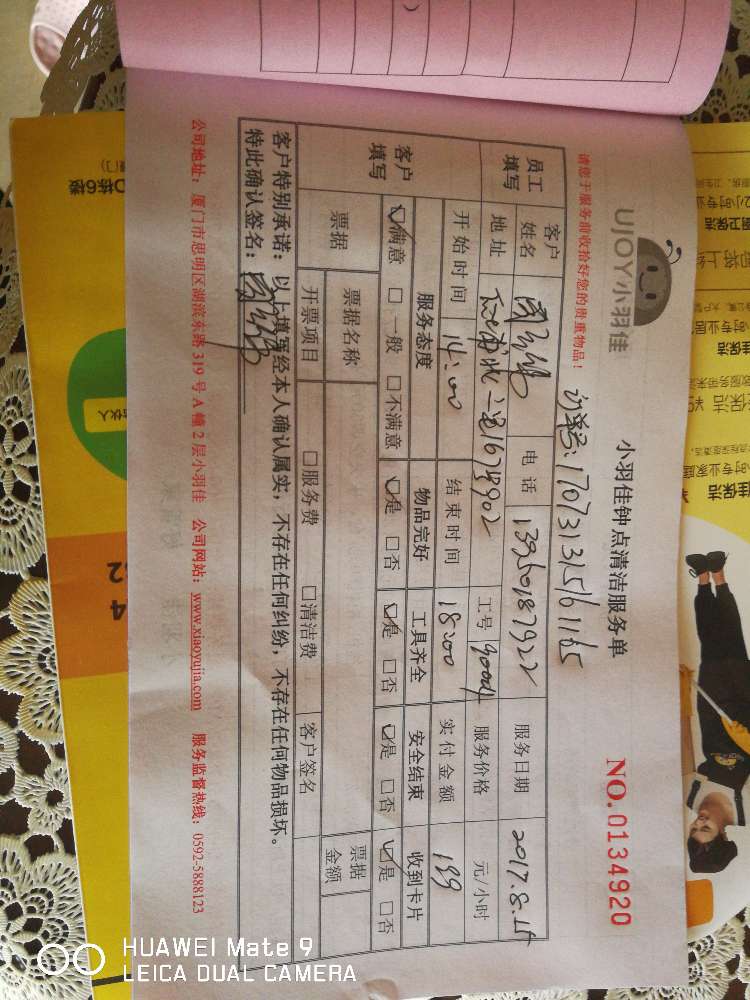 UJOY小羽佳
小羽佳钟点清洁服务单
NO.0134920
请您于服务前收拾好您的贵重物品！
订单号：170731315161165
员工填写
客户姓名
电话
13960187922
服务日期
2017.8.15
地址
工号
服务价格
元/小时
开始时间
14:00
结束时间
18:00
实付金额
139
客户填写
服务态度
物品完好
工具齐全
安全结束
收到卡片
☑满意 □一般 □不满意
☑是 □否
☑是 □否
☑是 □否
☑是 □否
票据
票据名称
票据金额
开票项目
□服务费
□清洁费
客户签名
客户特别承诺：以上填写经本人确认属实，不存在任何纠纷，不存在任何物品损坏。
特此确认签名：
公司地址：厦门市思明区湖滨东路319号A幢2层小羽佳 公司网站：www.xiaoyujia.com 服务监督热线：0592-5888123
D栋6楼
HUAWEI Mate 9
LEICA DUAL CAMERA